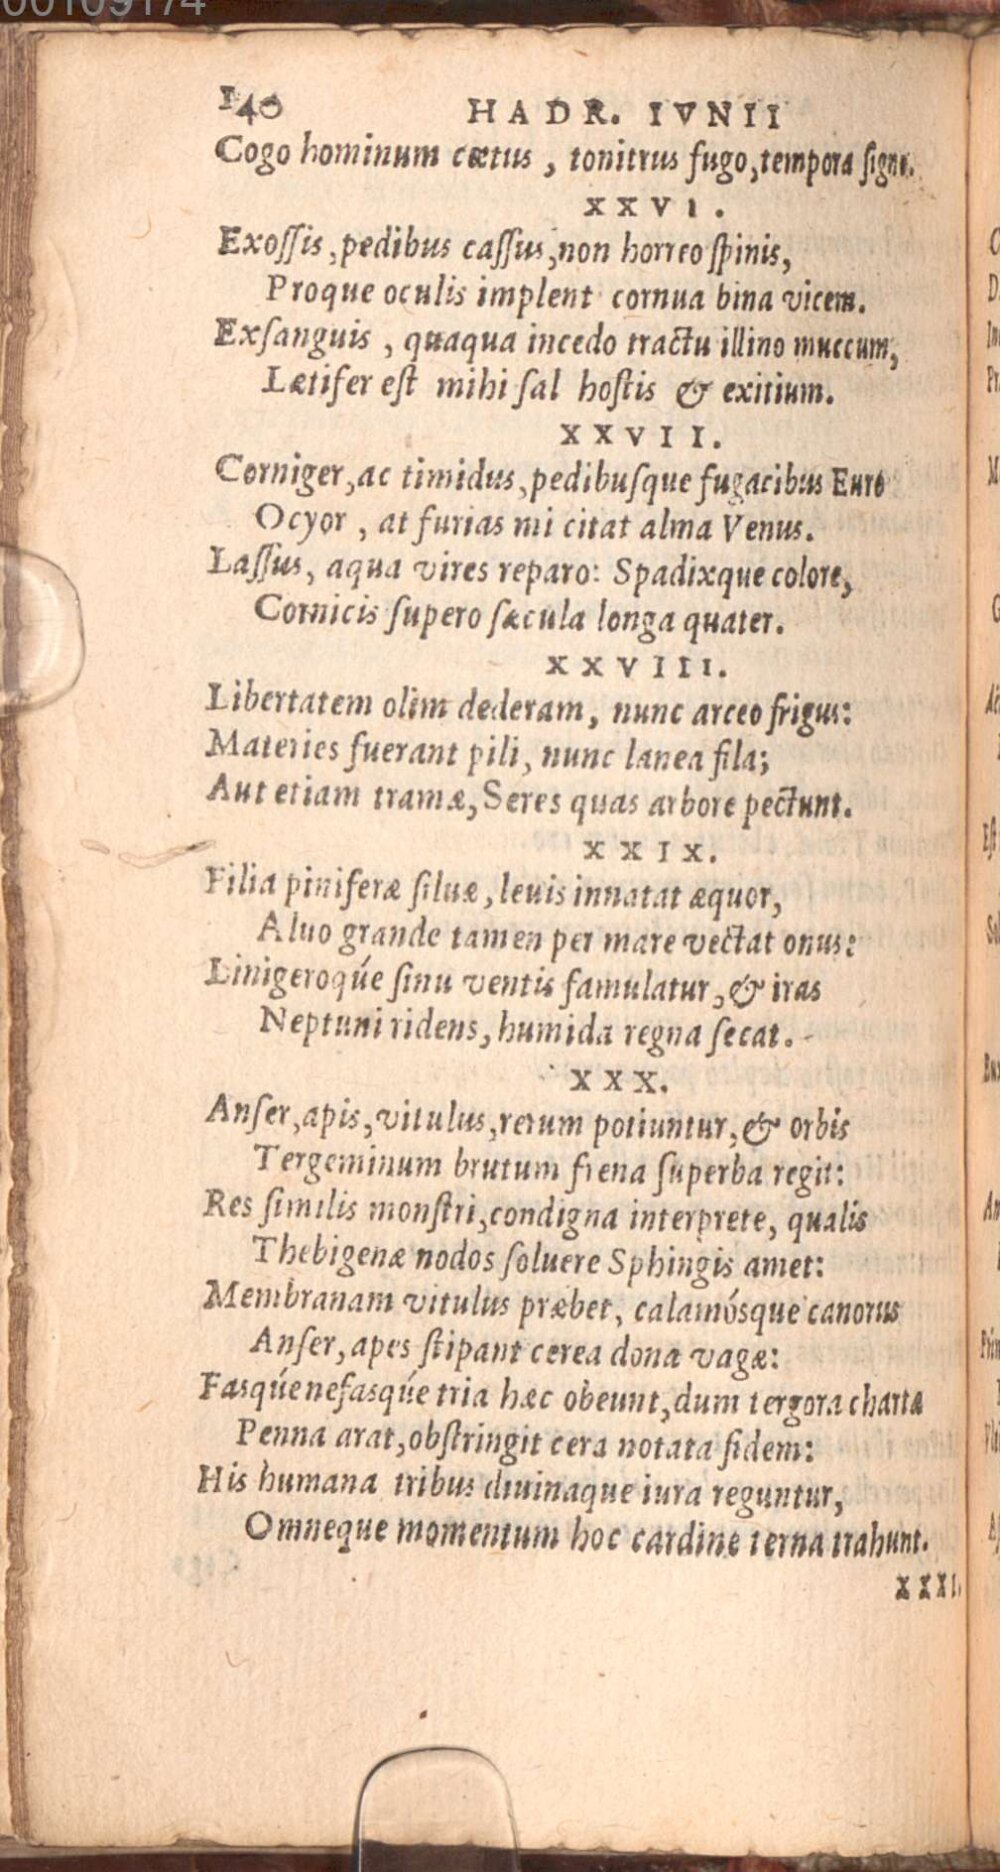 140 HADR. IVNII
Cogo hominum cœtus, tonitrus fugo, tempora signo.
XXVI.
Exossis, pedibus cassus, non horreo spinis,
Proque oculis implent cornua bina vicem.
Exsanguis, quaqua incedo tractu illino muccum,
Lætifer est mihi sal hostis & exitium.
XXVII.
Corniger, ac timidus, pedibusque fugacibus Euro
Ocyor, at furias mi citat alma Venus.
Lassus, aqua vires reparo: Spadixque colore,
Cornicis supero sæcula longa quater.
XXVIII.
Libertatem olim dederam, nunc arceo frigus:
Materies fuerant pili, nunc lanea fila;
Aut etiam tramæ, Seres quas arbore pectunt.
XXIX.
Filia piniferæ siluæ, leuis innatat æquor,
Aluo grande tamen per mare vectat onus:
Linigeroqúe sinu ventis famulatur, & iras
Neptuni ridens, humida regna secat.
XXX.
Anser, apis, vitulus, rerum potiuntur, & orbis
Tergeminum brutum frena superba regit:
Res similis monstri, condigna interprete, qualis
Thebigenæ nodos soluere Sphingis amet:
Membranam vitulus præbet, calamósque canorus
Anser, apes stipant cerea dona vagæ:
Fasqúe nefasqúe tria hæc obeunt, dum tergora chartæ
Penna arat, obstringit cera notata fidem:
His humana tribus diuinaque iura reguntur,
Omneque momentum hoc cardine terna trahunt.
XXXI.